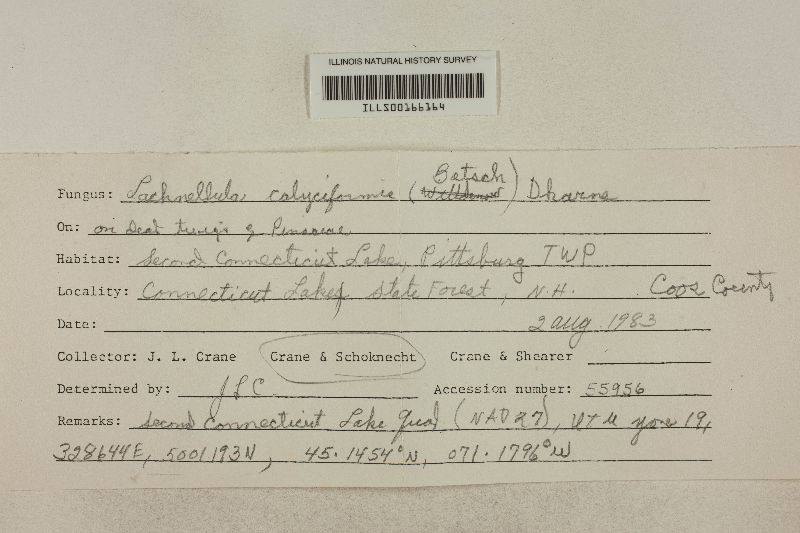 ILLINOIS NATURAL HISTORY SURVEY
ILLS00166164
Fungus: Lachnellula calyciformis (Willdenow Batsch) Dharne
On: on dead twigs of Pinaceae
Habitat: Second Connecticut Lake, Pittsburg TWP
Locality: Connecticut Lakes State Forest, N.H. Coos County
Date: 2 Aug 1983
Collector: J. L. Crane Crane & Schoknecht Crane & Shearer
Determined by: JLC Accession number: 55956
Remarks: Second Connecticut Lake Quad (NAD 27), UTM Zone 19,
328644E, 5001193N, 45.1454°N, 071.1796°W